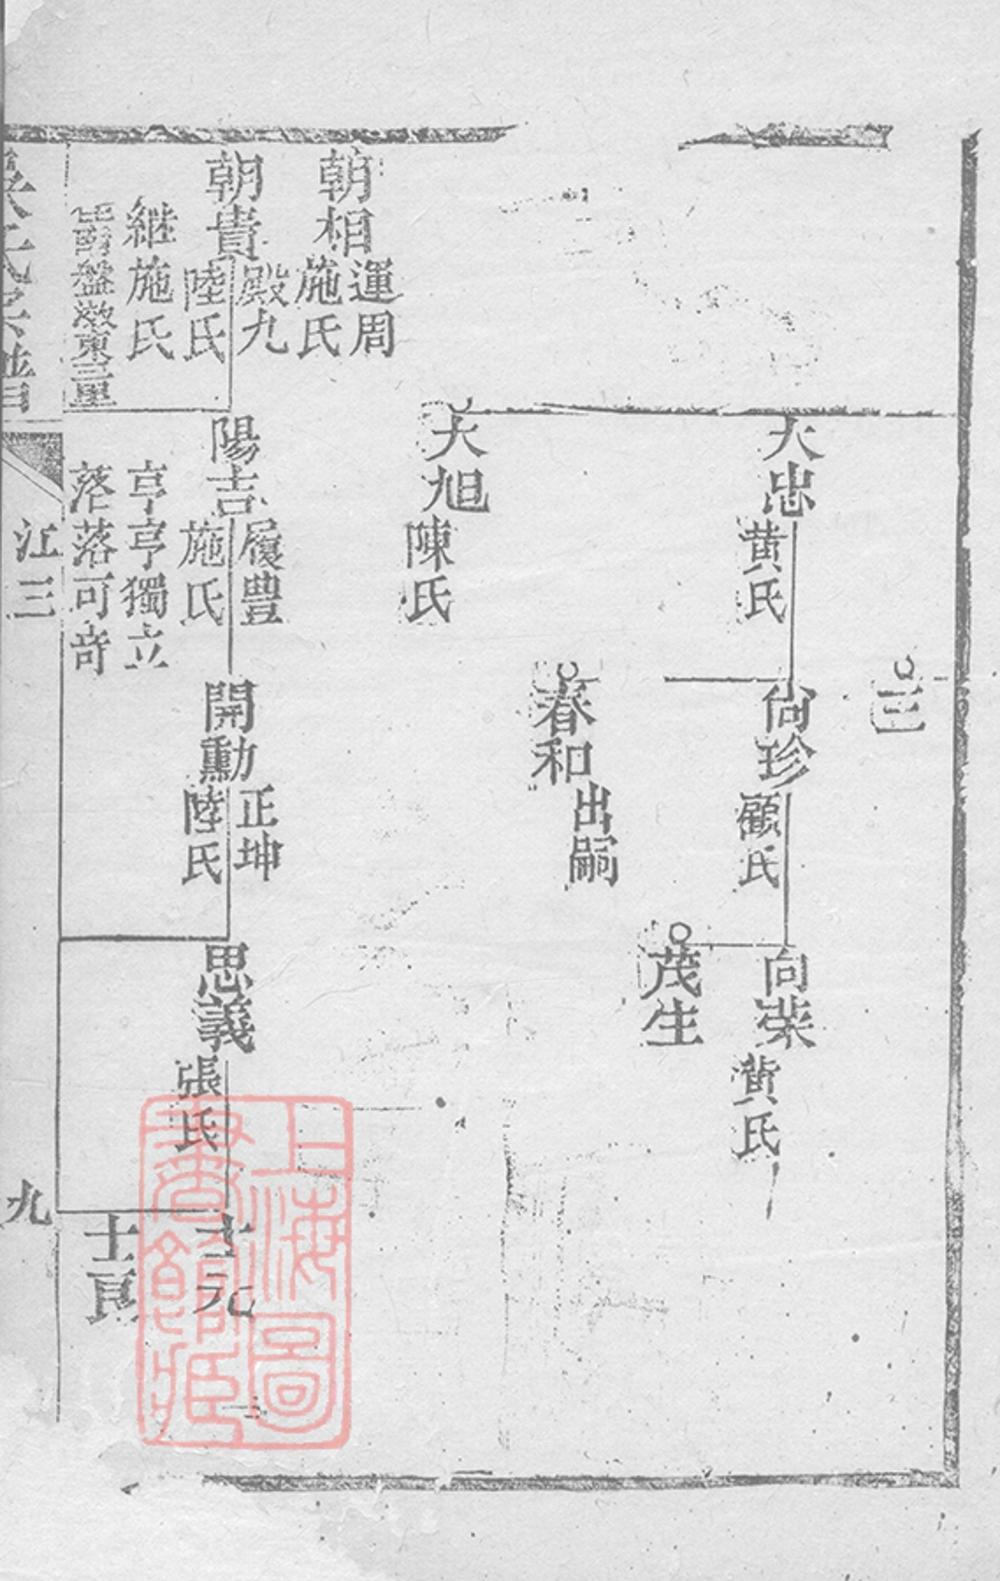 三
大忠
黄氏
尙珍
顧氏
向荣
黄氏
茂生
春和
出嗣
大旭
陳氏
朝相
運周
施氏
朝貴
殿九
陸氏
継施氏
陽吉
履豊
施氏
亨亨獨立
落落可奇
開勳
正坤
陸氏
思義
張氏
士元
士良
氏宗譜
江三
九
上海圖
書館藏